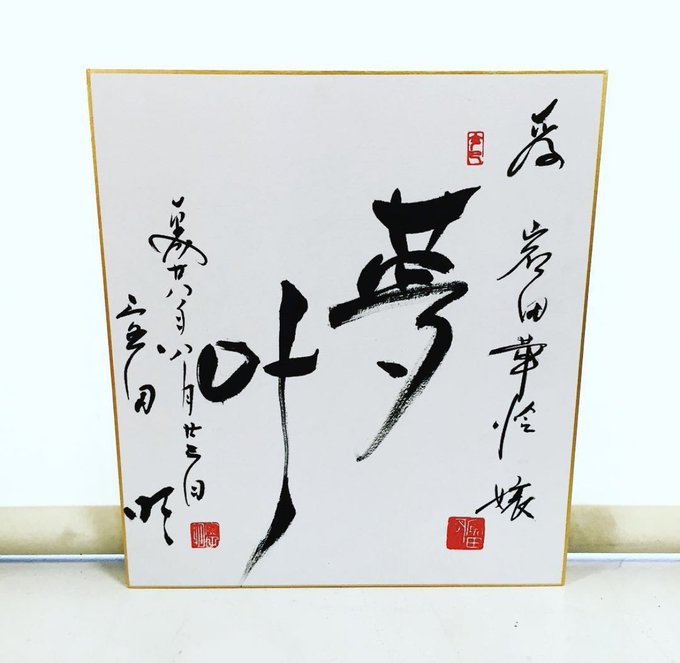 為 岩田華怜 嬢
夢
叶
廿八年八月廿三日
宝田 明